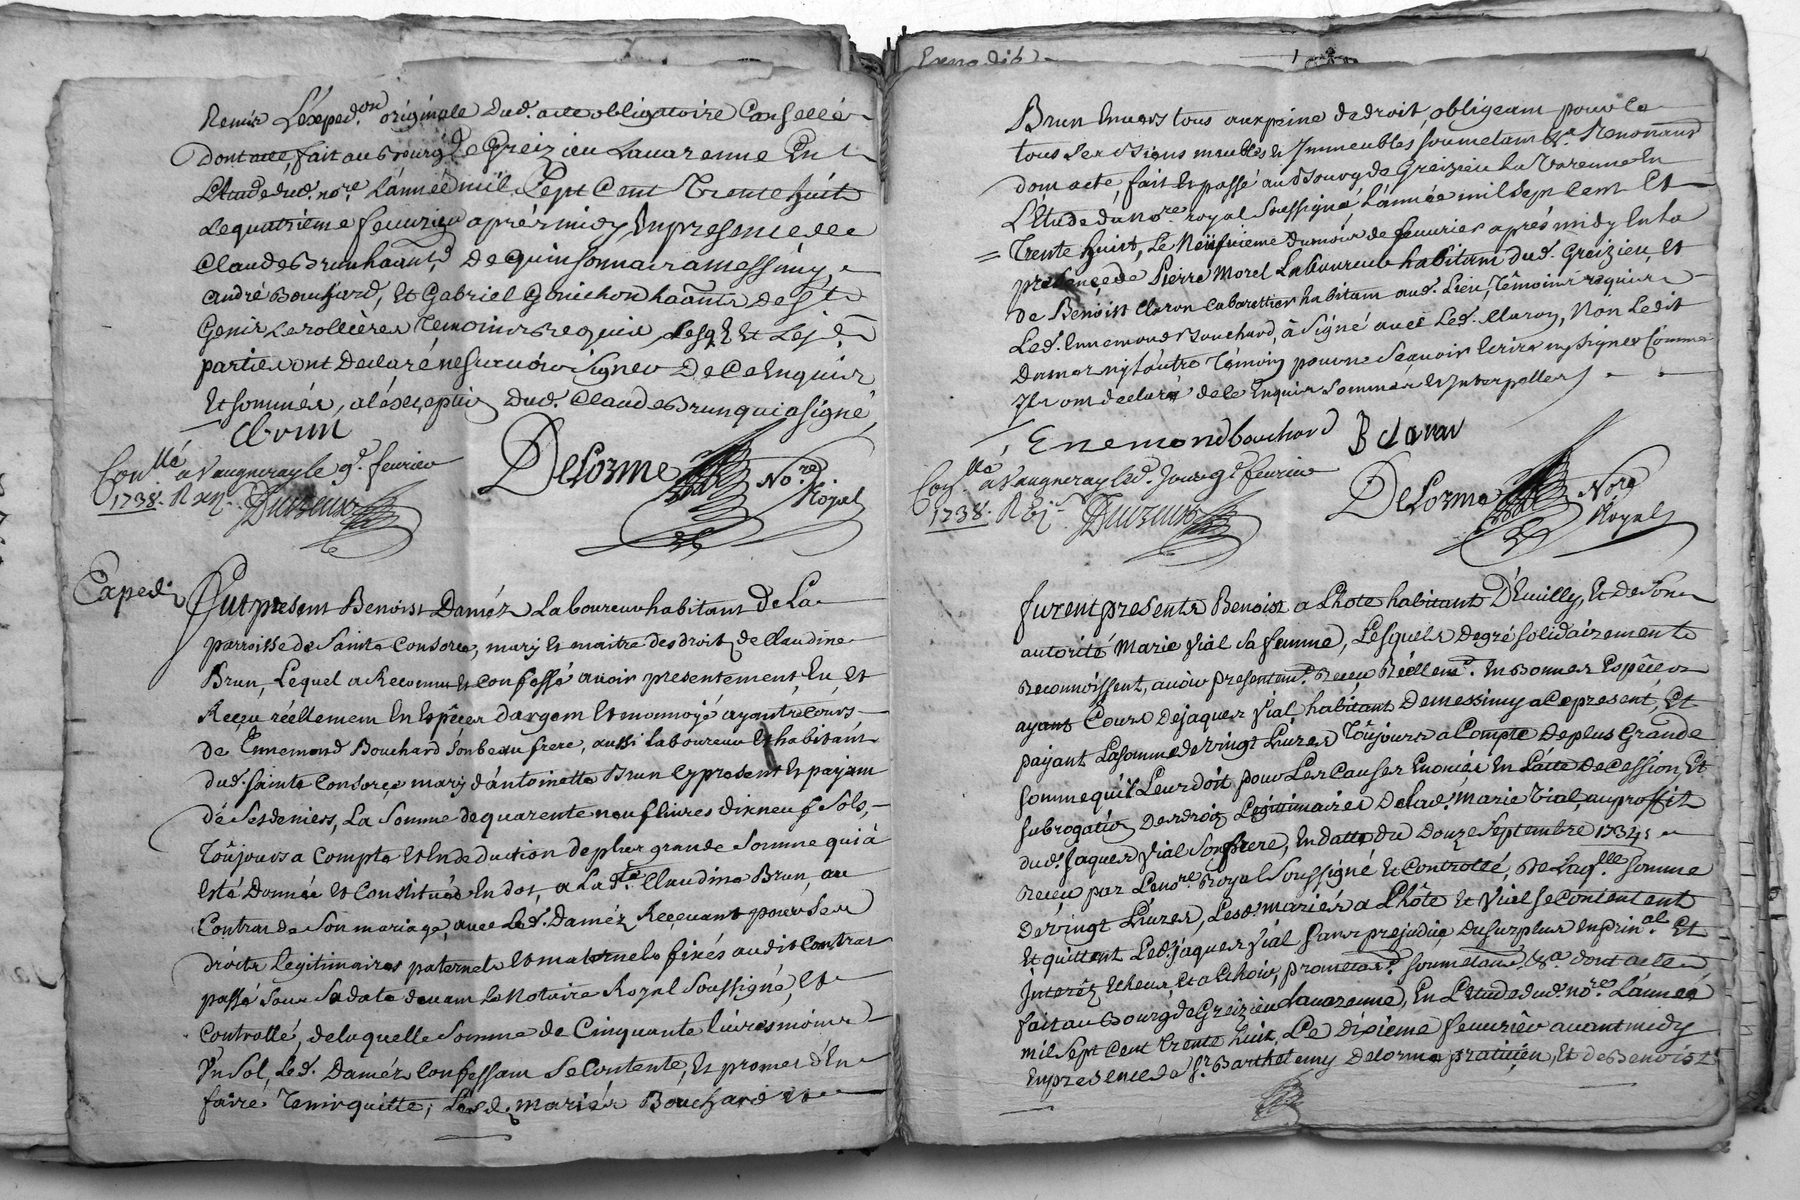 Remis L'éxped.on originale dud. acte obligatoire Cancellé
Dont acte, fait au Bourg De Greizieu Lavarenne En
L'Etude dud. no.re L'année mil Sept Cent Trente huit
Le quatrieme fevrier aprés midy En presence de
Claude Brun haant, De quinsonnat a messimy,
André Bouchard, Et Gabriel Gonichon haants de St
Genis Lerollieres Temoins requis Lesq. Et Les d.
parties ont Declaré ne Scavoir Signer De Ce Enquis
Et sommés, a lésception Dud. Claude Brun qui a signé
CBrun
Delorme No.re Royal
Con.llé a Vaugneray le 9.e fevrier
1738. R xij.
Exped.
Fut present Benoist Daméz Laboureur habitant de La
parroisse de Sainte Consorce, mary et maitre des droit de Claudine
Brun, Lequel a Reconnu et confessé avoir presentement Eu, Et
Reçeu réellement En Espêces d'argent Et monnoye ayant cours
de Ennemond Bouchard Son beau frere, aussi Laboureur Et habitant
dud. Sainte Consorce mary d'antoinette Brun Cy present Et payant
dé Ses deniers, La Somme de quarente neuf livres dix neuf Sols,
Toûjours a Compte et En deduction de plus grande Somme qui a
Esté Donnée Et Constituée En dot, a La d.te Claudine Brun, au
Contrat de Son mariage, avec Led. Daméz Reçevant pour Ses
droits Legitimaires paternels Et maternels fixés audit Contrat
passé Sous Sa date devant Le Notaire Royal Soussigné, Et
Controllé, de laquelle Somme de Cinquante livres moins
Un Sol, Led. Daméz Confessant Se Contente, Et promet d'En
faire Tenir quitte, Lesd. mariés Bouchard Et
Brun Envers tous aux peine de droit, obligeant pour ce
tous Ses Biens meubles Et Immeubles Soumetant &.a Renonceant
dont acte, fait Et passé au Bourg de Greizieu La Varenne En
L'Etude du No.re royal Soussigné L'année mil Sept Cent Et
Trente huit, Le Neufvieme du mois de fevrier aprés midy En La
presence de Pierre Morel Laboureur habitant dud. Greizieu, Et
de Benoist Claron Cabarettier habitant aud. Lieu, Têmoins requis
Led. Ennemond Bouchard, à Signé avec Led. Claron, Non Ledit
Damez ny L'autre Témoin pour ne Scavoir Ecrire ny Signer Comme
Ils ont declaré de Ce Enquis Sommés Et Interpellés
Enemond bouchard B Claron
Delorme No.re Royal
Con.llé a Vaugneray led. Jour 9.e fevrier
1738. R
furent presents Benoist a Lhote habitant D'Evuilly, Et de Son
autorité Marie Vial Sa femme, Lesquels de gré Solidairement
Reconnoissent, avoir presentem.t Reçeu Réellem.t En Bonnes Espêces
ayant Cours De jaques Vial habitant De messimy a Ce present, Et
payant La somme de vingt Livres Toûjours a Compte de plus Grande
Somme qu'il Leur doit pour Les Causes Enoncées En L'acte de Cession, Et
Subrogation Des droits Legitimaires De Lad. Marie Vial, au proffit
dud. Jaques Vial Son frere, En datte du Douze Septembre 1734,
Reçeu par Le no.re Royal Soussigné Et Controllé, De Laq.lle Somme
De vingt Livres, Lesd. mariés a Lhôte Et Vial se Contentent
Et quittent Led. jaques Vial Sans prejudice du surplus En prin.al Et
Interéz Echeus, Et a Echoir, prometant, Soumetant &.a dont acte
fait au Bourg de Greizieu Lavarenne, En L'Etude dud. no.re L'année
mil Sept Cent Trente huit, Le dixieme fevrier avant midy
En presence de S.r Barthelemy Delorme praticien, Et de Benoist